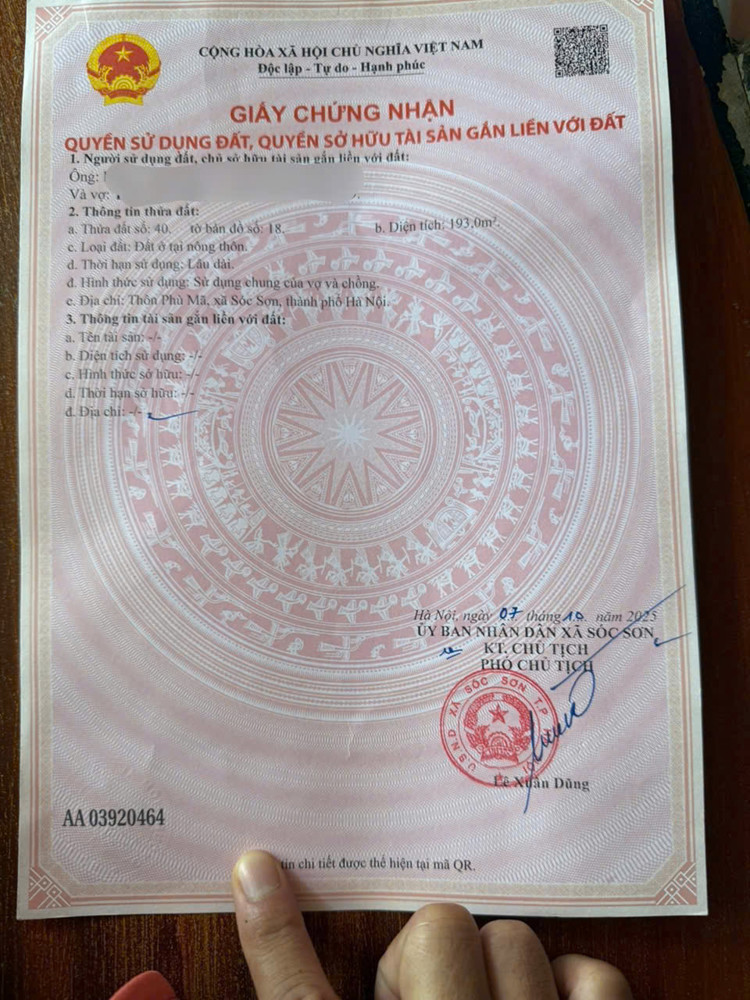 CỘNG HÒA XÃ HỘI CHỦ NGHĨA VIỆT NAM
Độc lập - Tự do - Hạnh phúc
GIẤY CHỨNG NHẬN
QUYỀN SỬ DỤNG ĐẤT, QUYỀN SỞ HỮU TÀI SẢN GẮN LIỀN VỚI ĐẤT
1. Người sử dụng đất, chủ sở hữu tài sản gắn liền với đất:
Ông:
Và vợ:
2. Thông tin thửa đất:
a. Thửa đất số: 40. tờ bản đồ số: 18. b. Diện tích: 193,0m².
c. Loại đất: Đất ở tại nông thôn.
d. Thời hạn sử dụng: Lâu dài.
đ. Hình thức sử dụng: Sử dụng chung của vợ và chồng.
e. Địa chỉ: Thôn Phù Mã, xã Sóc Sơn, thành phố Hà Nội.
3. Thông tin tài sản gắn liền với đất:
a. Tên tài sản: -/-
b. Diện tích sử dụng: -/-
c. Hình thức sở hữu: -/-
d. Thời hạn sở hữu: -/-
đ. Địa chỉ: -/-
Hà Nội, ngày 07 tháng 10. năm 2025
ỦY BAN NHÂN DÂN XÃ SÓC SƠN
KT. CHỦ TỊCH
PHÓ CHỦ TỊCH
U.B.N.D XÃ SÓC SƠN T.P
Lê Xuân Dũng
AA 03920464
tin chi tiết được thể hiện tại mã QR.